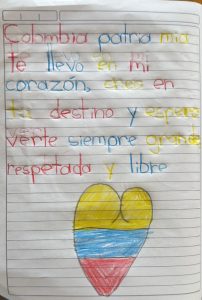 Colombia patria mia
te llevo en mi
corazón, eres en
tu destino y espero
verte siempre grande
respetada y libre